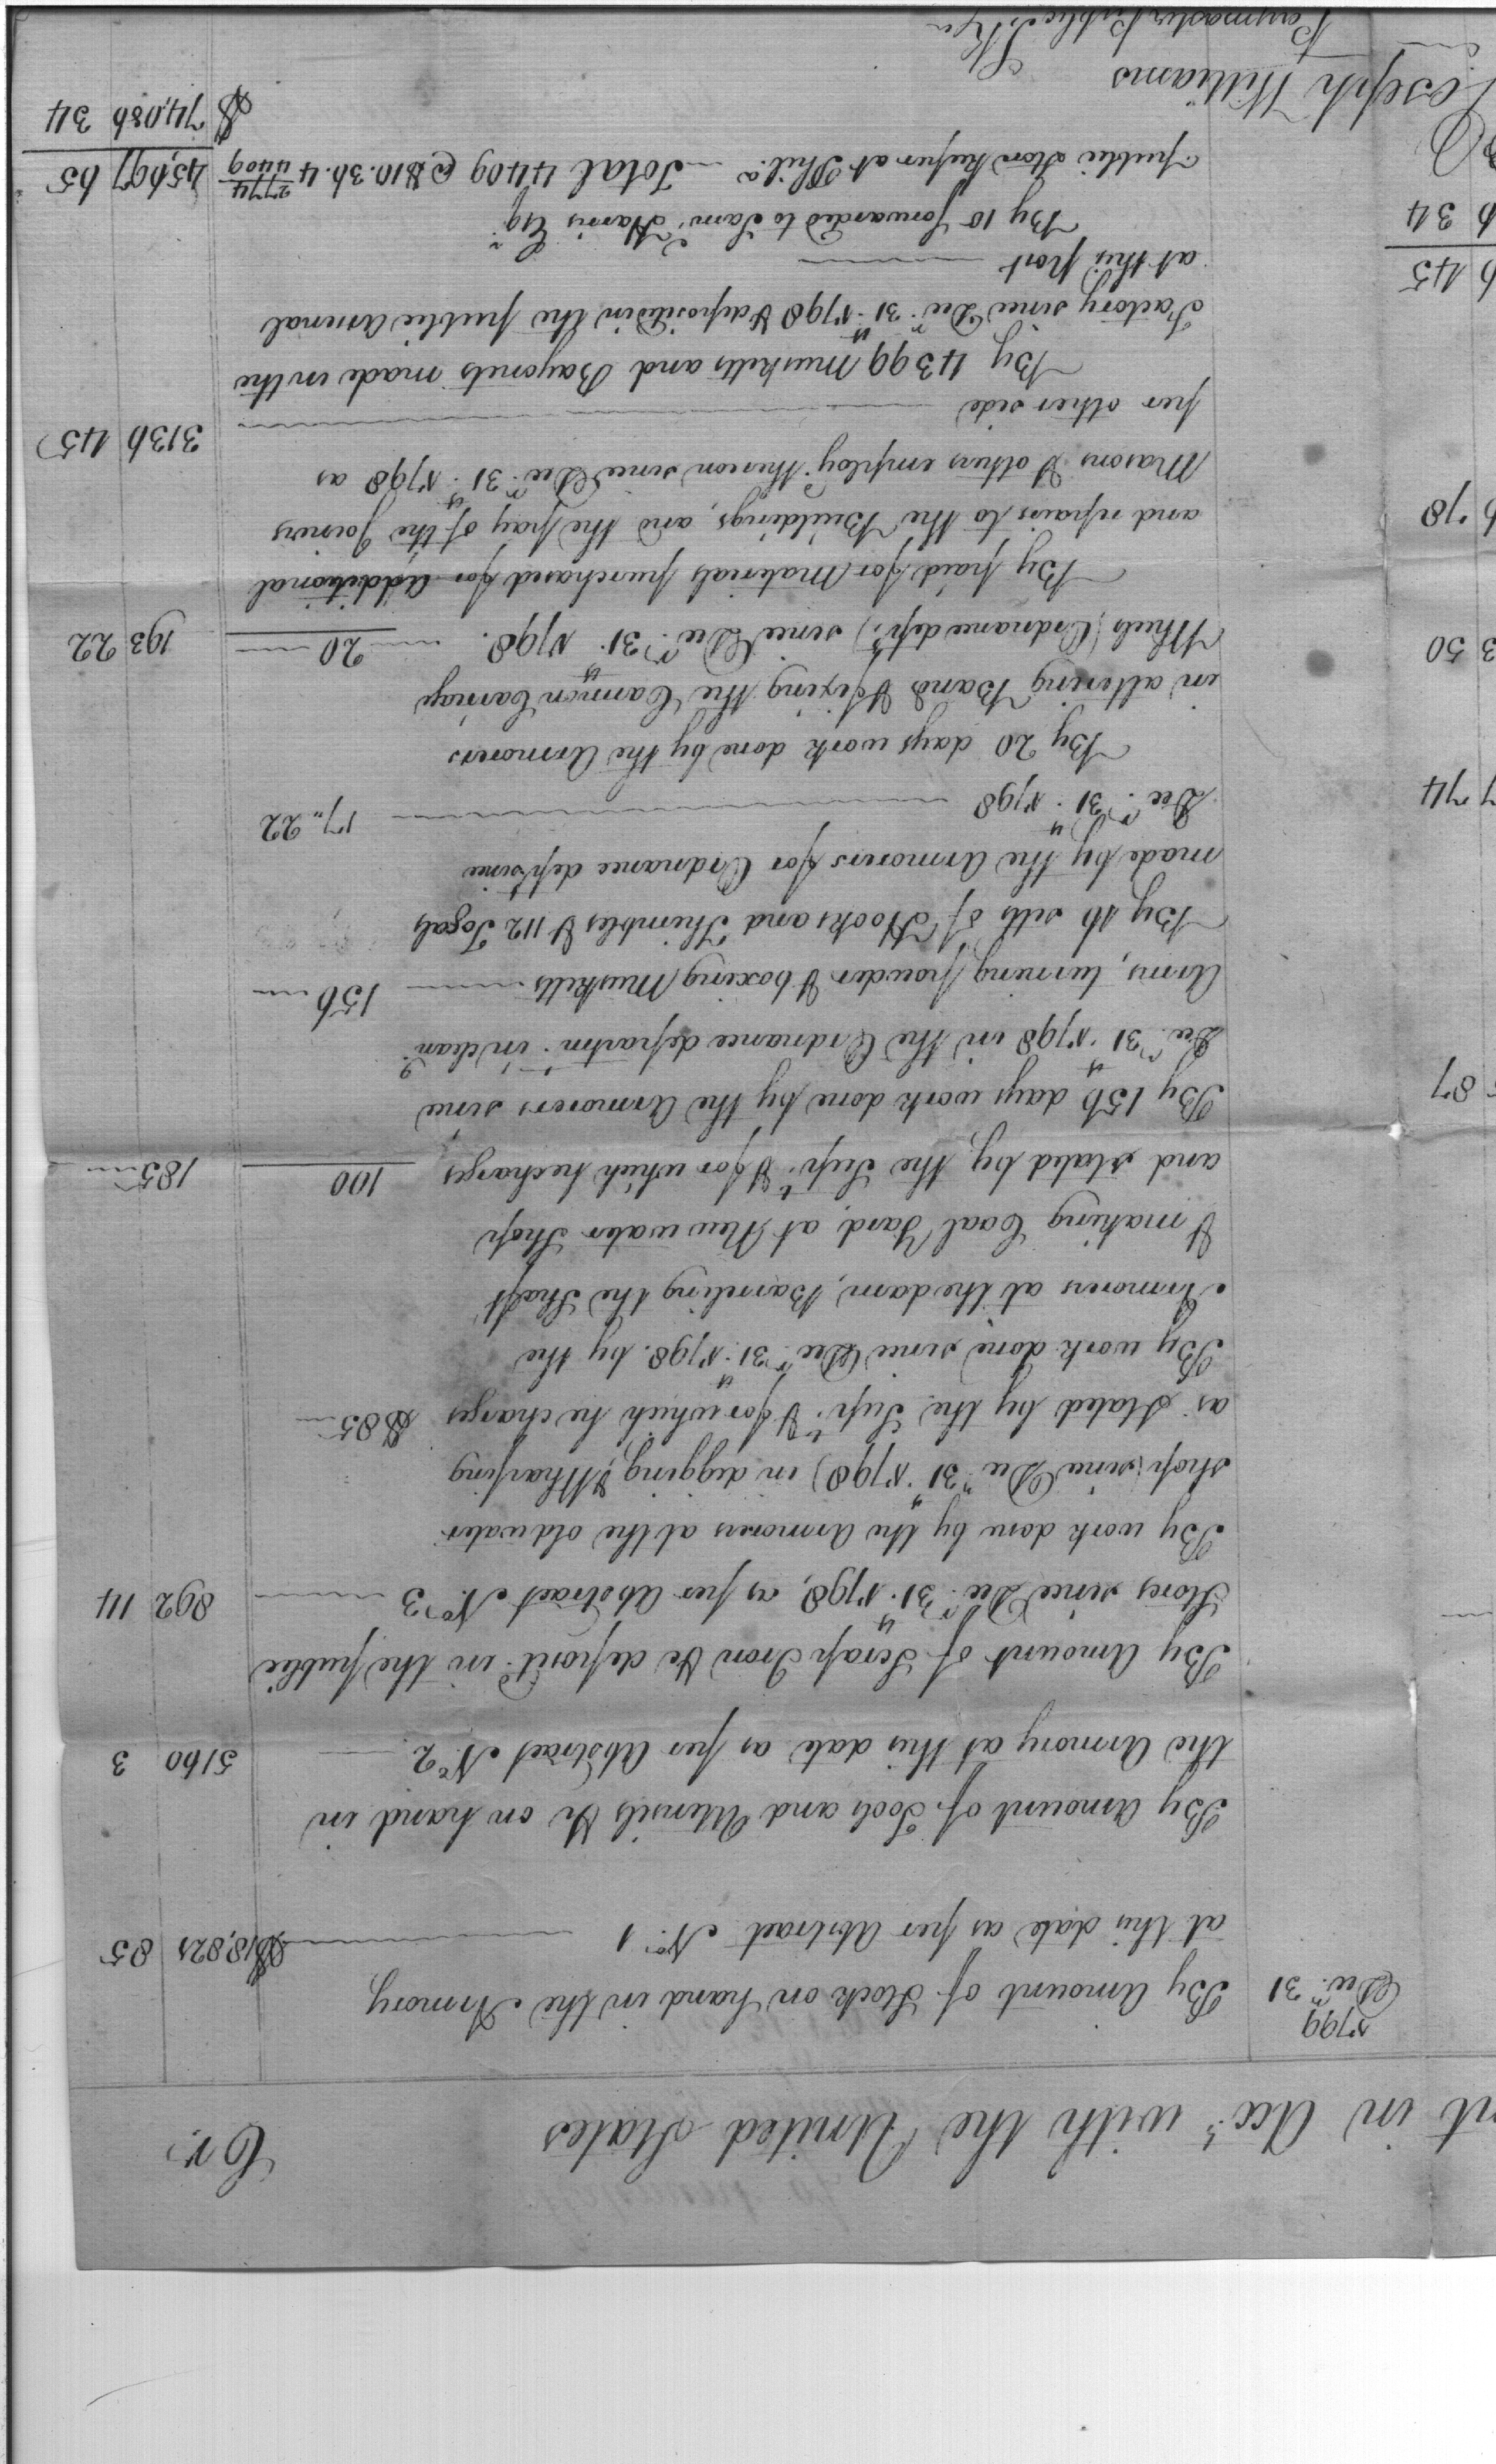 nt in Acct. with the United States Cr.
1799
Decr. 31 By Amount of Stock on hand in the Armory,
at this date as per Abstract No. 1 $18,821 85
By Amount of Tools and Utensils &c on hand in
the Armory at this date as per Abstract No. 2 5160 3
By Amount of Scrap Iron &c deposit'd in the public
Stores since Decr. 31st. 1798, as per Abstract No. 3 892 14
By work done by the Armorers at the old water
shop (since Decr. 31st. 1798) in digging, & Wharfing
as stated by the Supt. & for which he charges $85
By work done since Decr. 31st. 1798. by the
Armorers at the dam, Barreling the Shaft
& making Coal Yard, at New water Shop
and stated by the Supt. & for which he charges 100 185
By 156 days work done by the Armorers since
Decr. 31st. 1798 in the Ordnance departmt. in clean.g
Arms, turning powder & boxing Musketts 156
By 16 setts of Hooks and Thimbles & 112 Togals
made by the Armorers for Ordnance dept. since
Decr. 31st. 1798 17,, 22
By 20 days work done by the Armorers
in altering Bands & fixing the Cannon Carriage
Wheels (Ordnance dept.) since Decr. 31st. 1798. 20 193 22
By paid for Materials purchased for Additional
and repairs to the Buildings, and the pay of the Joiners
Masons & others employ'd thereon since Decr. 31st. 1798 as
per other side 3136 45
By 4399 Musketts and Bayonets made in the
Factory since Decr. 31st. 1798 & deposited in the public Arsenal
at this Post
By 10 forwarded to Saml. Harris Esqr.
public Store Keeper at Phila. Total 4409 @ $10.36.4 2774/4409 45,697 65
$ 74,086 34
Joseph Williams
Paymaster Public
6 45
6 34
6 78
3 50
7 74
5 87